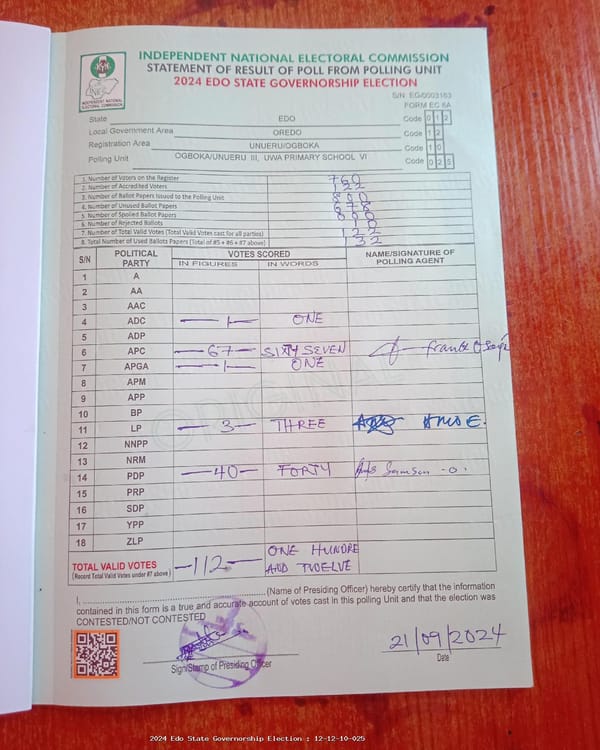 INDEPENDENT NATIONAL ELECTORAL COMMISSION
STATEMENT OF RESULT OF POLL FROM POLLING UNIT
2024 EDO STATE GOVERNORSHIP ELECTION
INDEPENDENT NATIONAL ELECTORAL COMMISSION
S/N: EG/0003163
FORM EC 8A
State EDO Code 0 1 2
Local Government Area OREDO Code 1 2
Registration Area UNUERU/OGBOKA Code 1 0
Polling Unit OGBOKA/UNUERU III, UWA PRIMARY SCHOOL VI Code 0 2 5
1. Number of Voters on the Register 760
2. Number of Accredited Voters 122
3. Number of Ballot Papers Issued to the Polling Unit 800
4. Number of Unused Ballot Papers 678
5. Number of Spoiled Ballot Papers
6. Number of Rejected Ballots
7. Number of Total Valid Votes (Total Valid Votes cast for all parties) 122
8. Total Number of Used Ballots Papers (Total of #5 + #6 + #7 above) 132
S/N POLITICAL PARTY VOTES SCORED NAME/SIGNATURE OF POLLING AGENT
IN FIGURES IN WORDS
1 A
2 AA
3 AAC
4 ADC 1 ONE
5 ADP
6 APC 67 SIXTY SEVEN Frank
7 APGA 1 ONE
8 APM
9 APP
10 BP
11 LP 3 THREE
12 NNPP
13 NRM
14 PDP 40 FORTY Samson .O.
15 PRP
16 SDP
17 YPP
18 ZLP
TOTAL VALID VOTES 112 ONE HUNDRE
(Record Total Valid Votes under #7 above) AND TWELVE
I, .................... (Name of Presiding Officer) hereby certify that the information
contained in this form is a true and accurate account of votes cast in this polling Unit and that the election was
CONTESTED/NOT CONTESTED
21/09/2024
Sign/Stamp of Presiding Officer Date
ORIGINAL
2024 Edo State Governorship Election : 12-12-10-025